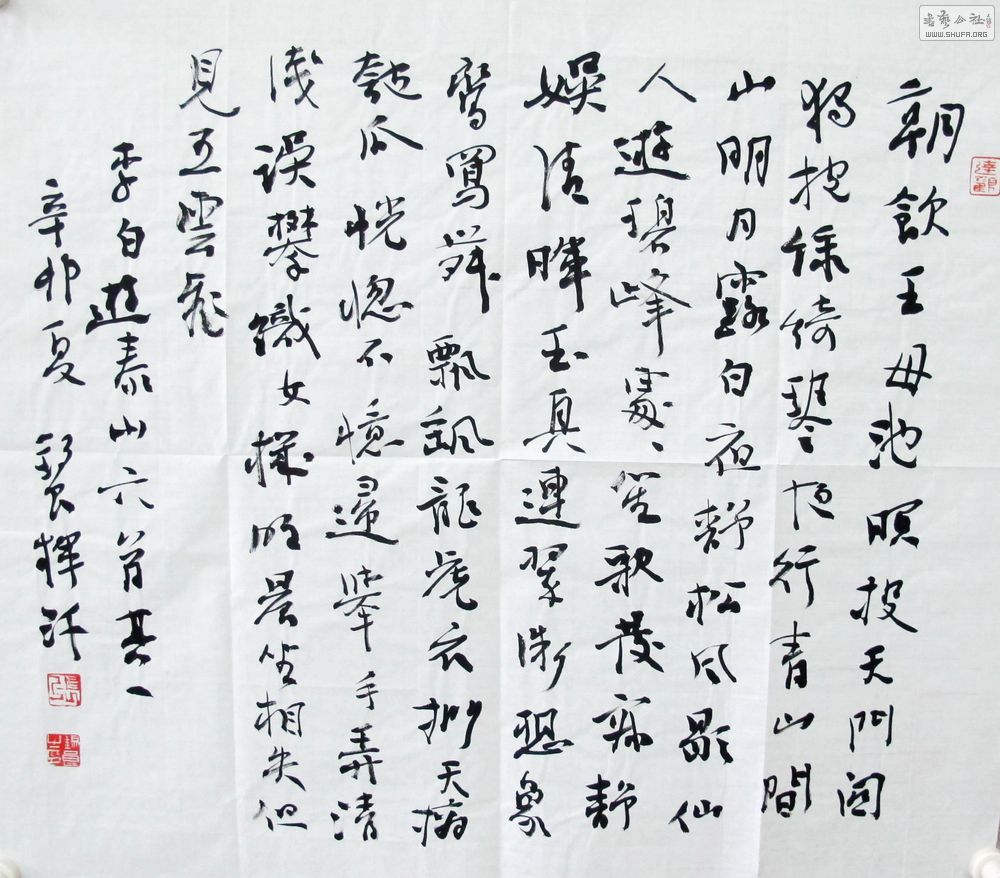 书艺公社
WWW.SHUFA.ORG
朝飲王母池暝投天門関
獨抱綠綺琴夜行青山間
山明月露白夜静松风歇仙
人遊碧峰處〻笙歌發寂静
娱清暉玉真連翠微想象
鸞鳳舞飄颻龍虎衣捫天摘
匏瓜恍惚不憶還舉手弄清
淺誤攀織女機明晨坐相失但
見五雲飛
李白遊泰山六首其一
辛卯夏